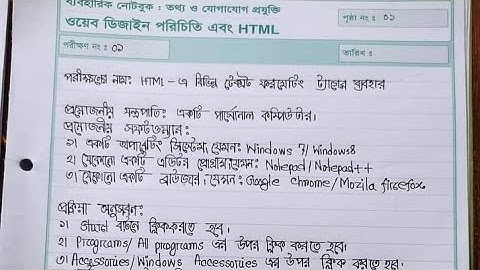 ব্যবহারিক নোটবুক : তথ্য ও যোগাযোগ প্রযুক্তি
ওয়েব ডিজাইন পরিচিতি এবং HTML
পৃষ্ঠা নং : ০১
পরীক্ষণ নং : ০১
তারিখ :
পরীক্ষণের নাম: HTML-এ বিভিন্ন টেক্সট ফরমেটিং ট্যাগের ব্যবহার
প্রয়োজনীয় যন্ত্রপাতি: একটি পার্সোনাল কম্পিউটার।
প্রয়োজনীয় সফটওয়্যার:
১। একটি অপারেটিং সিস্টেম, যেমন: Windows 7/Windows8
২। যেকোনো একটি এডিটর প্রোগ্রাম, যেমন: Notepad/Notepad++
৩। যেকোনো একটি ব্রাউজার, যেমন: Google Chrome/Mozila firefox
প্রক্রিয়া অনুসরণ:
১। Start বাটনে ক্লিক করতে হবে।
২। Programs/All programs এর উপর ক্লিক করতে হবে।
৩। Accessories/Windows Accessories এর উপর ক্লিক করতে হবে।